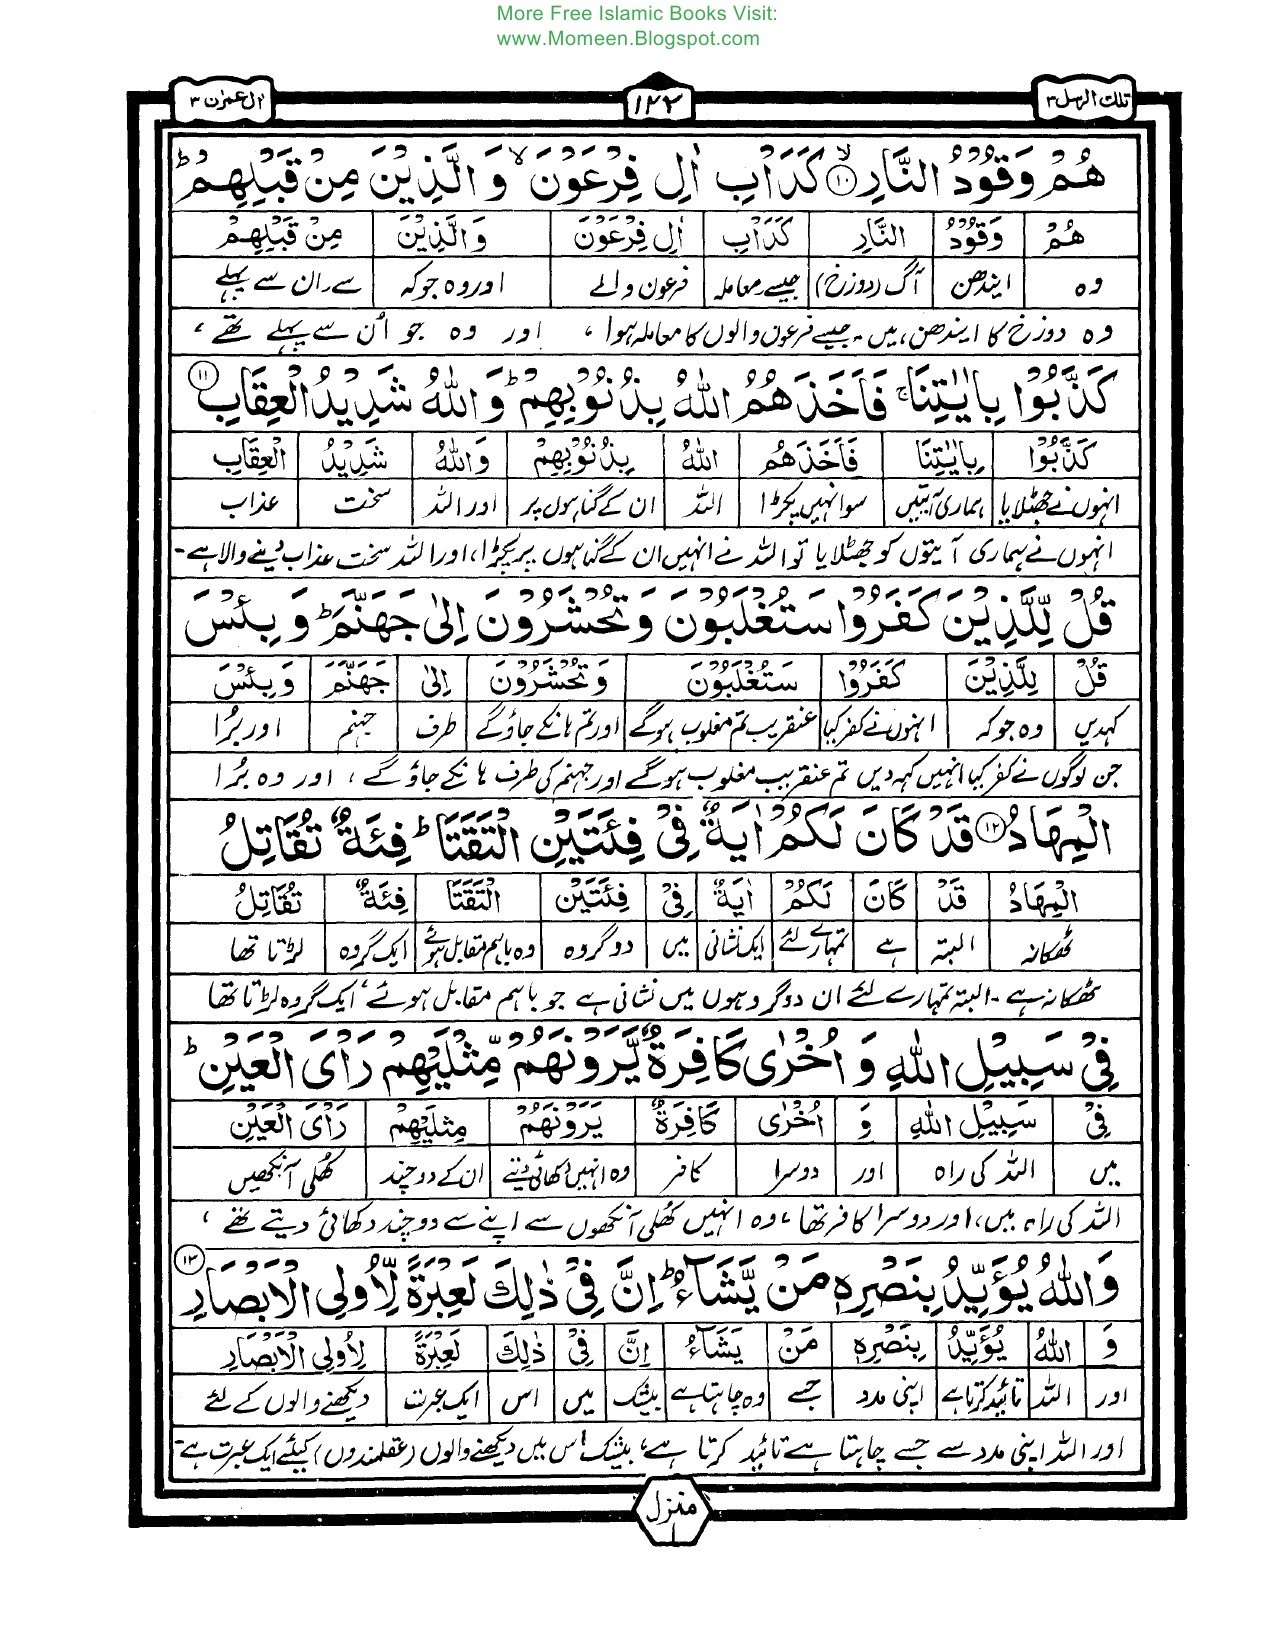 More Free Islamic Books Visit:
www.Momeen.Blogspot.com
تلك الرسل ۳
۱۲۲
اٰل عمرٰن ۳
هُمْ وَقُوْدُ النَّارِ ۱۰ كَدَاْبِ اٰلِ فِرْعَوْنَ وَالَّذِيْنَ مِنْ قَبْلِهِمْ ط
هُمْ وَقُوْدُ النَّارِ كَدَاْبِ اٰلِ فِرْعَوْنَ وَالَّذِيْنَ مِنْ قَبْلِهِمْ
وہ ایندھن آگ (دوزخ) جیسے۔معاملہ فرعون والے اور وہ جو کہ سے۔ان سے پہلے
وہ دوزخ کا ایندھن ہیں۔ جیسے فرعون والوں کا معاملہ ہوا ، اور وہ جو اُن سے پہلے تھے ،
كَذَّبُوْا بِاٰيٰتِنَا ج فَاَخَذَهُمُ اللّٰهُ بِذُنُوْبِهِمْ ط وَاللّٰهُ شَدِيْدُ الْعِقَابِ ۱۱
كَذَّبُوْا بِاٰيٰتِنَا فَاَخَذَهُمُ اللّٰهُ بِذُنُوْبِهِمْ وَاللّٰهُ شَدِيْدُ الْعِقَابِ
انہوں نے جھٹلایا ہماری آیتیں سو انہیں پکڑا اللہ ان کے گناہوں پر اور اللہ سخت عذاب
انہوں نے ہماری آیتوں کو جھٹلایا تو اللہ نے انہیں ان کے گناہوں پر پکڑا ، اور اللہ سخت عذاب دینے والا ہے۔
قُلْ لِّلَّذِيْنَ كَفَرُوْا سَتُغْلَبُوْنَ وَتُحْشَرُوْنَ اِلٰى جَهَنَّمَ ط وَبِئْسَ
قُلْ لِلَّذِيْنَ كَفَرُوْا سَتُغْلَبُوْنَ وَتُحْشَرُوْنَ اِلٰى جَهَنَّمَ وَبِئْسَ
کہدیں وہ جو کہ انہوں نے کفر کیا عنقریب تم مغلوب ہوگے اور تم ہانکے جاؤگے طرف جہنم اور بُرا
جن لوگوں نے کفر کیا انہیں کہہ دیں تم عنقریب مغلوب ہوگے اور جہنم کی طرف ہانکے جاؤ گے ، اور وہ بُرا
الْمِهَادُ ۱۲ قَدْ كَانَ لَكُمْ اٰيَةٌ فِيْ فِئَتَيْنِ الْتَقَتَا ط فِئَةٌ تُقَاتِلُ
الْمِهَادُ قَدْ كَانَ لَكُمْ اٰيَةٌ فِيْ فِئَتَيْنِ الْتَقَتَا فِئَةٌ تُقَاتِلُ
ٹھکانہ البتہ ہے تمہارے لئے ایک نشانی میں دو گروہ وہ باہم مقابل ہوئے ایک گروہ لڑتا تھا
ٹھکانہ ہے۔ البتہ تمہارے لئے ان دو گروہوں میں نشانی ہے جو باہم مقابل ہوئے ، ایک گروہ لڑتا تھا
فِيْ سَبِيْلِ اللّٰهِ وَ اُخْرٰى كَافِرَةٌ يَّرَوْنَهُمْ مِّثْلَيْهِمْ رَاْىَ الْعَيْنِ ط
فِيْ سَبِيْلِ اللّٰهِ وَ اُخْرٰى كَافِرَةٌ يَرَوْنَهُمْ مِثْلَيْهِمْ رَاْىَ الْعَيْنِ
میں اللہ کی راہ اور دوسرا کافر وہ انہیں دکھائی دیتے ان کے دو چند کھلی آنکھیں
اللہ کی راہ میں ، اور دوسرا کافر تھا ، وہ انہیں کھلی آنکھوں سے اپنے سے دو چند دکھائی دیتے تھے ،
وَاللّٰهُ يُؤَيِّدُ بِنَصْرِهٖ مَنْ يَّشَآءُ ط اِنَّ فِيْ ذٰلِكَ لَعِبْرَةً لِّاُولِى الْاَبْصَارِ ۱۳
وَ اللّٰهُ يُؤَيِّدُ بِنَصْرِهٖ مَنْ يَشَآءُ اِنَّ فِيْ ذٰلِكَ لَعِبْرَةً لِاُولِى الْاَبْصَارِ
اور اللہ تائید کرتا ہے اپنی مدد جسے وہ چاہتا ہے بیشک میں اس ایک عبرت دیکھنے والوں کے لئے
اور اللہ اپنی مدد سے جسے چاہتا ہے تائید کرتا ہے ، بیشک اس میں دیکھنے والوں (عقلمندوں) کیلئے ایک عبرت ہے۔
منزل ۱